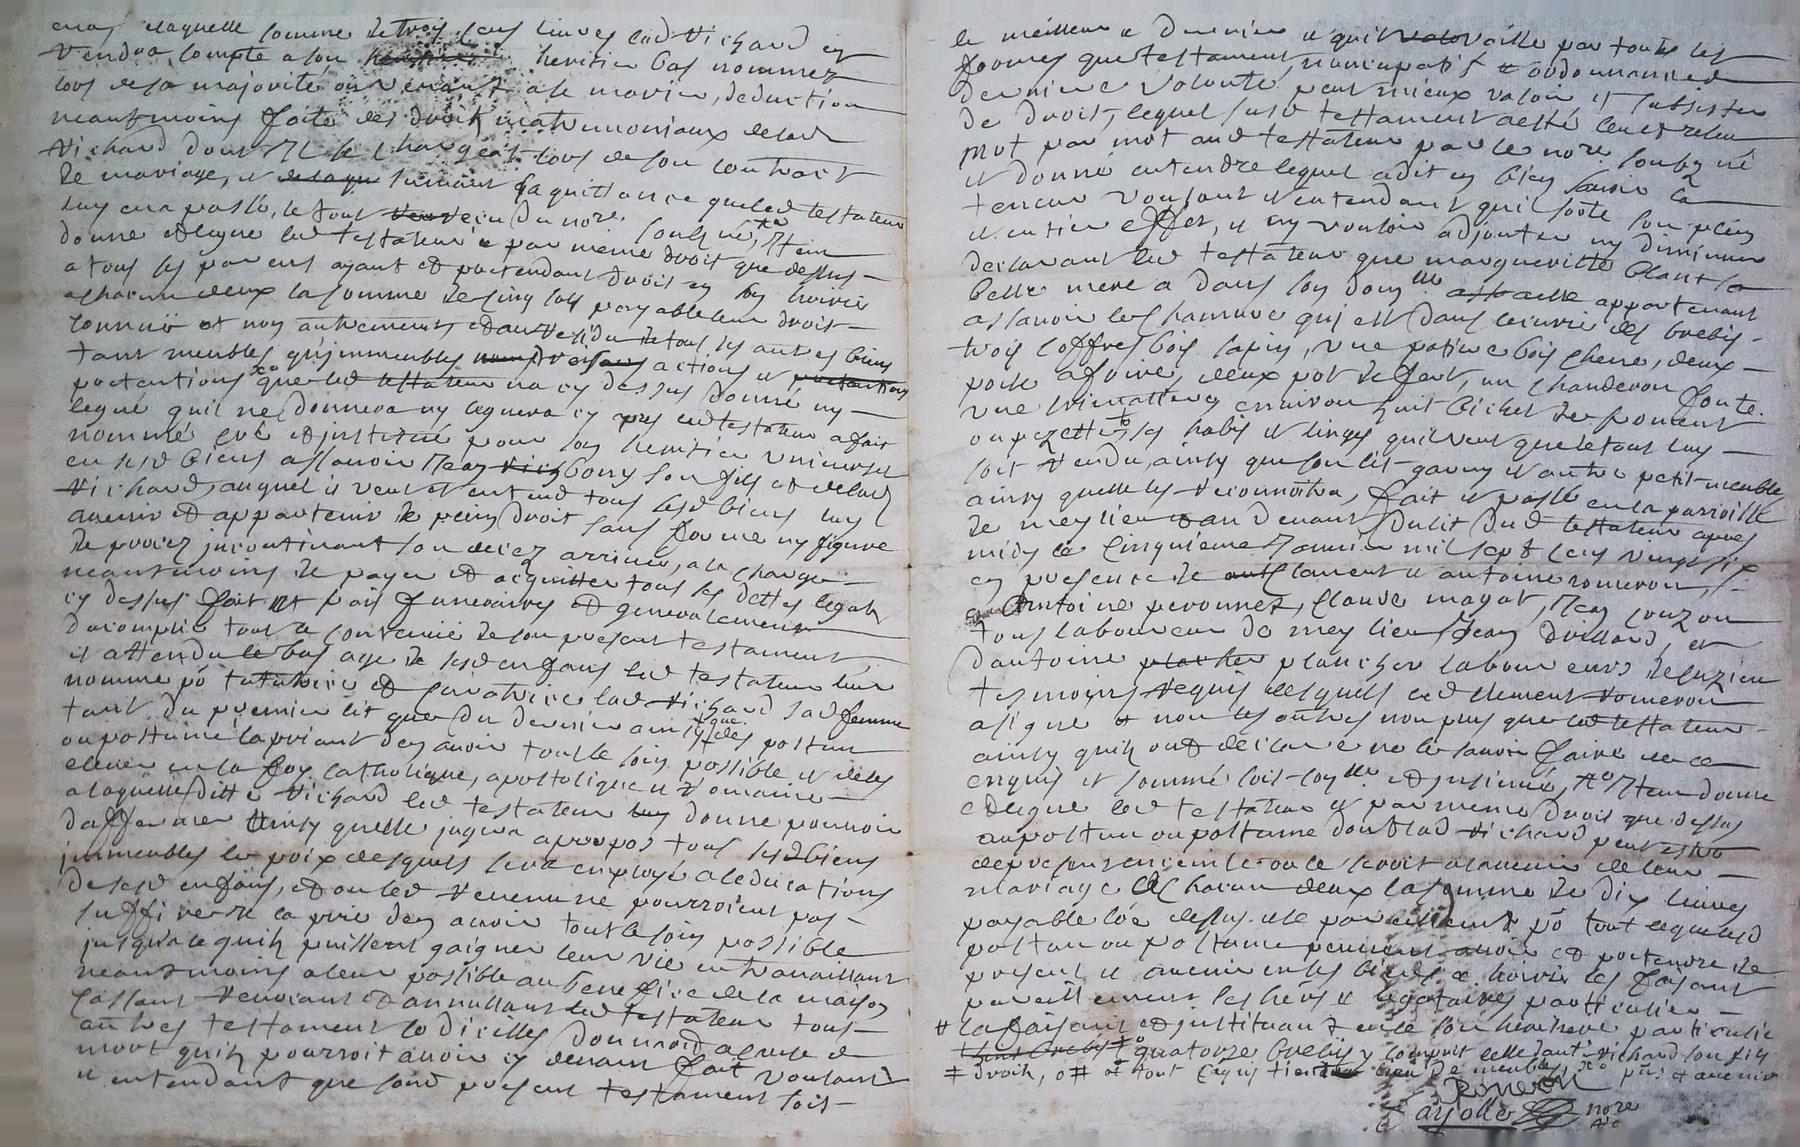 laquelle somme de trois cens livres lad Richard en
rendra compte a son heritier bas nommez
lors de sa majorité ou venant a se marier, deduction
neantmoins faite des droits matrimoniaux de lad
Richard dont Il se chargeat lors de son contract
de mariage, et suivant la quittance que led testateur
luy en a passé, le tout receu du nore. soubzné, Item
donne et legue led testateur et par meme droit que dessus
a tous les parens ayant et pretendant droit en son hoirie
a chacun deux la somme de cinq sols payable leur droit
connue et non autrement, et au residu de tous ses autres biens
tant meubles qu'immeubles actions et
pretentions que led testateur na cy dessus donné ny
legué quil ne donnera ny leguera cy apres led testateur a fait
nommé créé et institué pour son heritier universel
en sesd biens assavoir Jean bony son fils et de lad
Richard, auquel il veut et entend tous sesd biens luy
avenir et appartenir de plein droit sans forme ny figure
de procez incontinant son decez arrivé, a la charge
neantmoins de payer et acquitter tous ses dettes legats
cy dessus fait et frais funeraires et generalement
dacomplir tout le contenu de son present testament,
et attendu le bas age de sesd enfans led testateur leur
nomme po tutrice et curatrice lad Richard sad femme
tant du premier lit que du dernier ainsy que des postume
ou postumé la priant den avoir tout le soin possible et de les
elever en la foy catholique, apostolique et romaine
a laquelle ditte Richard led testateur donne pouvoir
daffermer ainsy quelle jugera apropos tous sesd biens
immeubles le prix desquels sera employé a leducations
de sesd enfans, et ou led revenu ne pourroient pas
suffire il la prie den avoir tout le soin possible
jusqua ce quils puissent gaigner leur vie en travaillant
neantmoins a leur possible au benefice de la maison
cassant revocant et annullant led testateur tous
autres testament codicilles donnaõn a cause de
mort quils pourroit avoir cy devant fait voulant
et entendant que son present testament soit
le meilleur et dernier et quil vaille par toutes les
formes que testament, nuncupatif et ordonnance de
derniere volonté peut mieux valoir et subsister
de droit, lequel susd testament a esté leu et releu
mot par mot aud testateur par le nore. soubzné
et donné entendre lequel a dit en bien savoir la
teneur voulant et entendant qui sorte son plein
et entier effet, et ny vouloir adjouter ny diminuer
declarant led testateur que margueritte blant sa
belle mere a dans son domlle appartenant
assavoir le chanvre qui est dans lecurie des brebis
trois coffres bois sapin, une patire bois chene, deux
poile a frire, deux pot de fert, un chanderon fonte
une environ huit bichet de froment
ses habis et linges quil veut que le tout luy
soit rendu, ainsy que son lit garny et autre petit meubles
ainsy quelle les reconnoitra, fait et passé en la parroisse
de meylieu au devant du lit dud testateur apres
midy le cinquieme Janvier mil sept cens vingt six
en presence de clement et antoine romeron,
antoine peronnez, claude magat, Jean couzon
tous laboureur de meylieu Jean drillard, et
dantoine plancher laboureurs de luzieu
tesmoins requis desquels led clement romeron
a signe et non les autres non plus que led testateur
ainsy quils ont declaré ne le savoir faire de ce
enquis et sommé et insinué, Item donne
et legue led testateur et par meme droit que dessus
au postume ou postume dont lad Richard peut estre
de present enceinte ou le seroit a lavenir de leur
mariage et chacun deux la somme de dix livres
payable co'e dessus et le pareillement po tout ce que led
postume ou postume peuvent avoir et pretendre de
present et avenir en ses biens et hoirie les faisant
pareillement ses heirs et legataires particulier
# la faisant et instituant en ce son heritiere particulie
quatorze brebis y compris celle dant Richard son fils
# droit, o# et tout ce qui tient lieu de meubles, xo pns et avenir
Romeron
ayolle nore
Ro